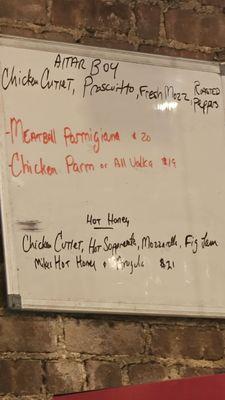 AltAR BOY
Chicken Cutlet, Prosciutto, Fresh Mozz, Roasted
Peppers
- Meatball Parmigiana $20
- Chicken Parm or All Vodka $19
Hot Honey
Chicken Cutlet, Hot Sopressata, Mozzarella, Fig Jam
Mikes Hot Honey + Arugula $21